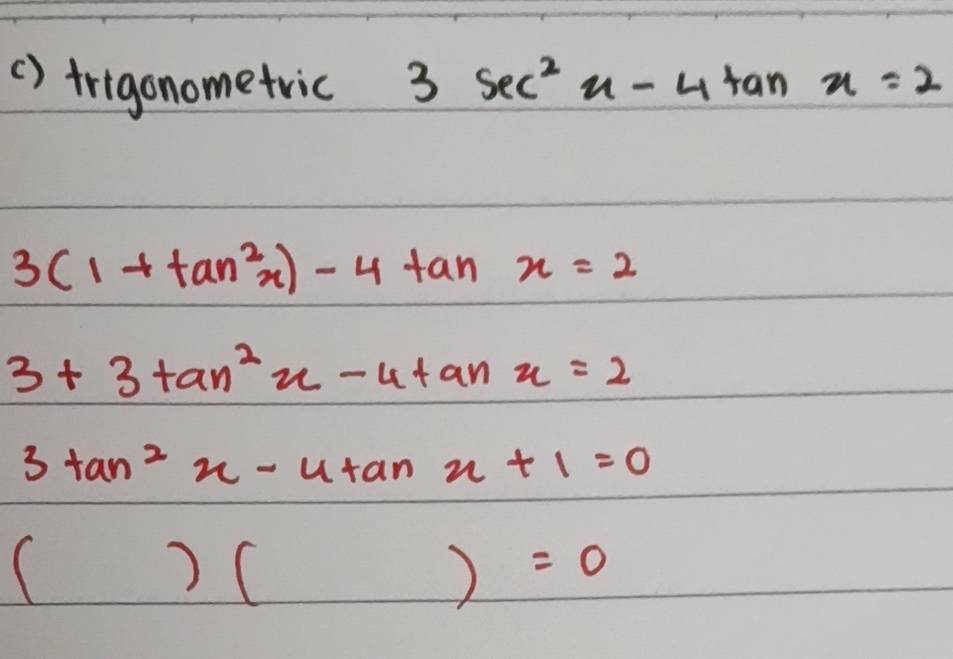 c) trigonometric 3 sec² x - 4 tan x = 2
3(1 + tan²x) - 4 tan x = 2
3 + 3 tan² x - 4 tan x = 2
3 tan² x - 4 tan x + 1 = 0
( ) ( ) = 0